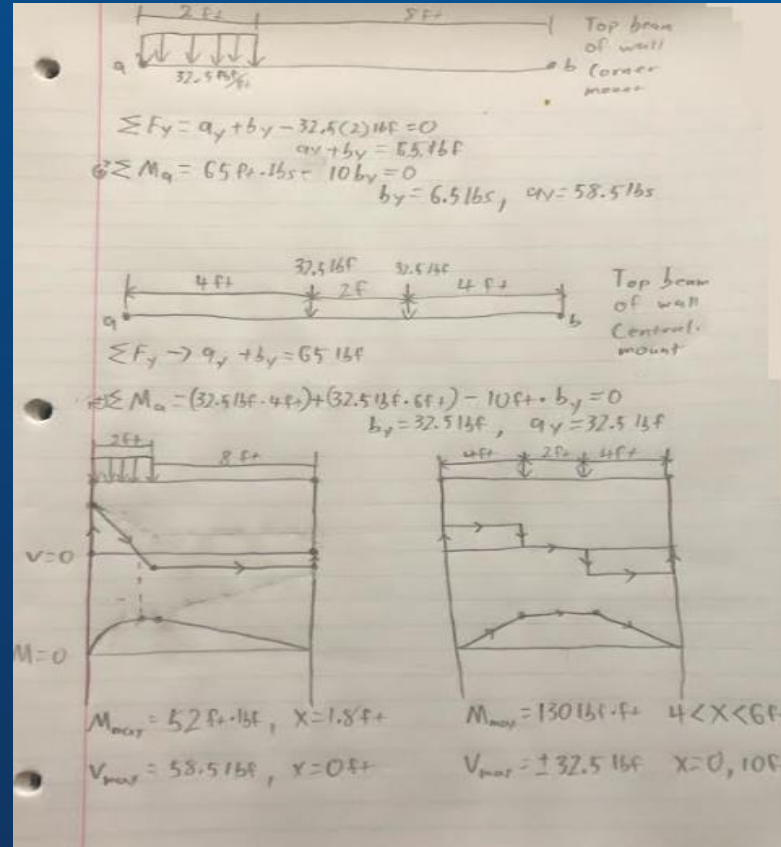 2 ft 8 ft
Top beam
of wall
Corner
mount
a b
32.5 lbf/ft
ΣFy = ay + by - 32.5(2) lbf = 0
ay + by = 65 lbf
ΣMa = 65 ft·lbs - 10by = 0
by = 6.5 lbs, ay = 58.5 lbs
32.5 lbf 32.5 lbf
4 ft 2 f 4 ft
Top beam
of wall
Central
mount
a b
ΣFy → ay + by = 65 lbf
ΣMa = (32.5 lbf·4ft) + (32.5 lbf·6ft) - 10ft·by = 0
by = 32.5 lbf, ay = 32.5 lbf
2ft 8 ft
4ft 2ft 4ft
V=0
M=0
Mmax = 52 ft·lbf, x = 1.8 ft
Mmax = 130 lbf·ft 4<x<6f
Vmax = 58.5 lbf, x = 0 ft
Vmax = ± 32.5 lbf x = 0, 10f